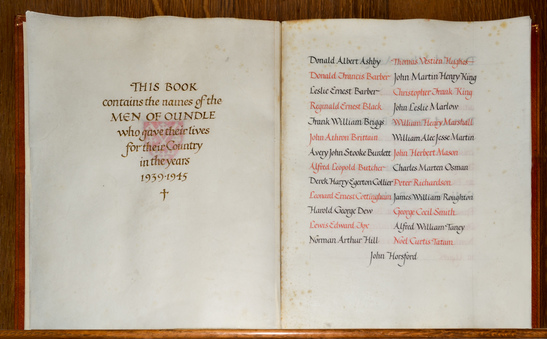 THIS BOOK
contains the names of the
MEN OF OUNDLE
who gave their lives
for their Country
in the years
1939-1945
Donald Albert Ashby
Donald Francis Barber
Leslie Ernest Barber
Reginald Ernest Black
Frank William
John Brittain
Avery John Stooke Burdett
Alfred Leopold Butcher
Derek Harry Egerton Collier
Leonard Ernest Cottingham
Harold George Dew
Lewis Edward
Norman Arthur Hill
Thomas
John Martin Henry King
Christopher Frank King
John Leslie Marlow
William Henry Marshall
William Alec Jesse Martin
John Herbert Mason
Charles Marten Osman
Peter Richardson
James William Roughton
George Cecil Smith
Alfred William
Noel Curtis Tatum
John Horsford